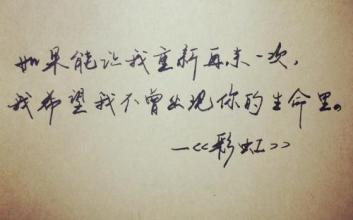 如果能让我重新再来一次，
我希望我不曾出现你的生命里。
—<<彩虹>>